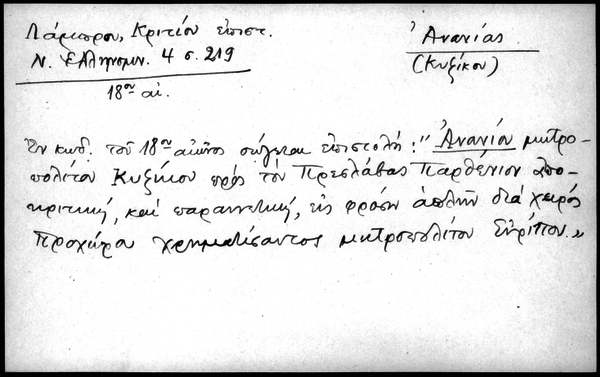 Λάμπρου, Κριτίου ἐπιστ.
Ν. Ἑλληνομν. 4 σ. 219
18ου αἰ.
Ἀνανίας
(Κυζίκου)
Ἐν κωδ. τοῦ 18ου αἰῶνος σώζεται ἐπιστολή: "Ἀνανίου μητρο-
πολίτου Κυζίκου πρὸς τὸν Πρεσλάβας Παρθένιον ἀπο-
κριτική, καὶ παραινετική, εἰς φράσιν ἁπλῆν διὰ χειρὸς
Προχόρου χρηματίσαντος μητροπολίτου Εὐρίπου."